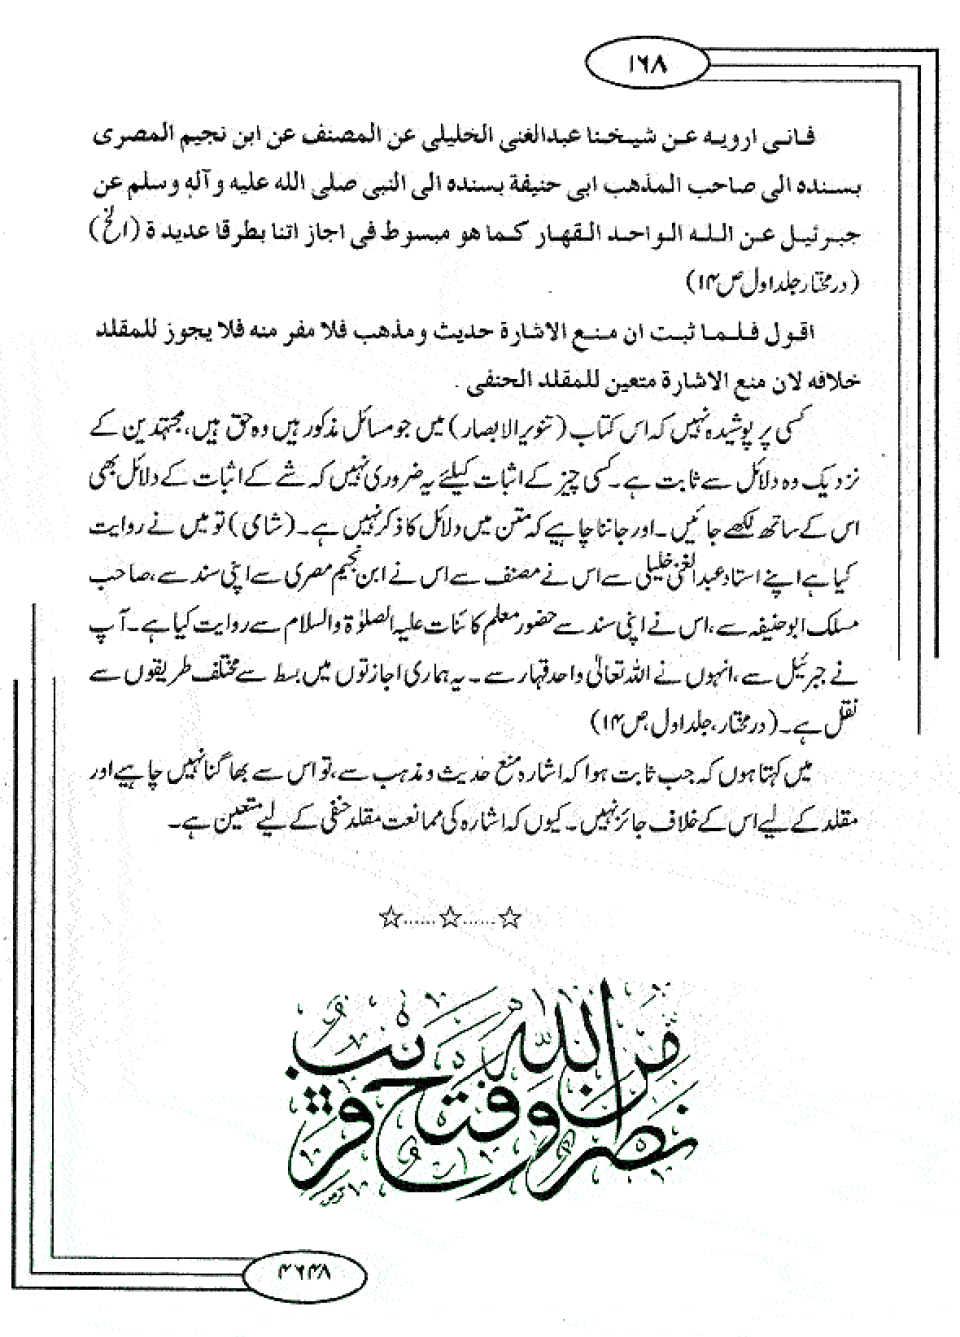 ۱۶۸
فانی ارویه عن شیخنا عبدالغنی الخلیلی عن المصنف عن ابن نجیم المصری
بسنده الی صاحب المذهب ابی حنیفة بسنده الی النبی صلی الله علیه وآله وسلم عن
جبرئیل عن الله الواحد القهار کما هو مبسوط فی اجاز اتنا بطرقا عدیدة (الخ)
(درمختار جلد اول ص ۱۴)
اقول فلما ثبت ان منع الاشارة حدیث ومذهب فلا مفر منه فلا یجوز للمقلد
خلافه لان منع الاشارة متعین للمقلد الحنفی .
کسی پر پوشیدہ نہیں کہ اس کتاب (تنویر الابصار) میں جو مسائل مذکور ہیں وہ حق ہیں، مجتہدین کے
نزدیک وہ دلائل سے ثابت ہے۔ کسی چیز کے اثبات کیلئے یہ ضروری نہیں کہ شے کے اثبات کے دلائل بھی
اس کے ساتھ لکھے جائیں۔ اور جاننا چاہیے کہ متن میں دلائل کا ذکر نہیں ہے۔ (شامی) تو میں نے روایت
کیا ہے اپنے استاد عبدالغنی خلیلی سے اس نے مصنف سے اس نے ابن نجیم مصری سے اپنی سند سے، صاحب
مسلک ابوحنیفہ سے، اس نے اپنی سند سے حضور معلم کائنات علیہ الصلوٰۃ والسلام سے روایت کیا ہے۔ آپ
نے جبرئیل سے، انہوں نے اللہ تعالیٰ واحد قہار سے۔ یہ ہماری اجازتوں میں بسط سے مختلف طریقوں سے
نقل ہے۔ (درمختار، جلد اول، ص ۱۴)
میں کہتا ہوں کہ جب ثابت ہوا کہ اشارہ منع حدیث و مذہب سے، تو اس سے بھاگنا نہیں چاہیے اور
مقلد کے لیے اس کے خلاف جائز نہیں۔ کیوں کہ اشارہ کی ممانعت مقلد حنفی کے لیے متعین ہے۔
☆......☆......☆
نصر من الله وفتح قريب